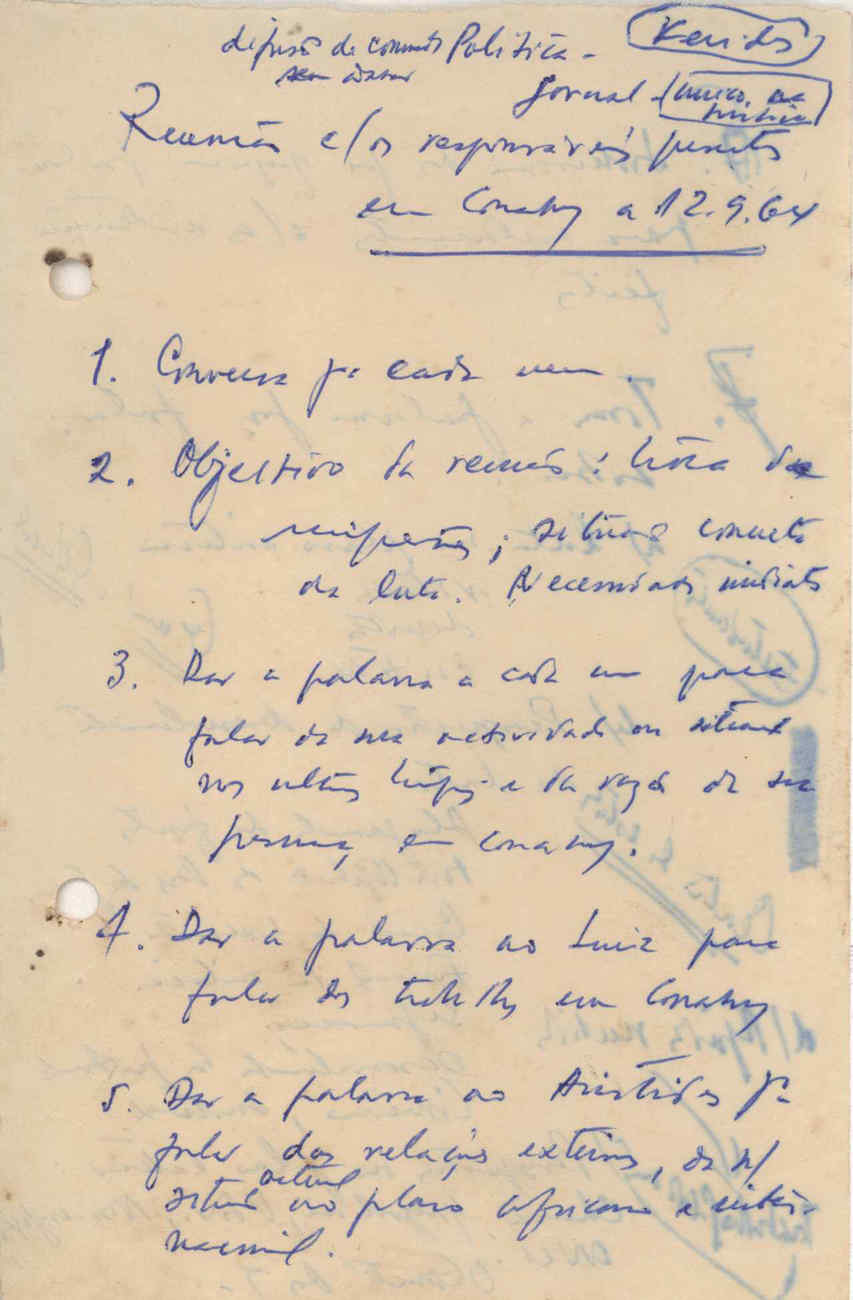 difusão de comunicados Política -
Jornal -
Reunião c/ os responsáveis presentes
em Conakry a 12.9.64
1. Conversa pa cada um.
2. Objectivo da reunião: troca de
situação concreta
da luta. Necessidades imediatas
3. Dar a palavra a cada um para
falar da sua actividade ou situação
nos últimos tempos e da razão da sua
presença em Conakry.
4. Dar a palavra ao Luiz para
falar dos trabalhos em Conakry
5. Dar a palavra ao Aristides pa
falar das relações exteriores, da n/
situação actual no plano africano e inter-
nacional.